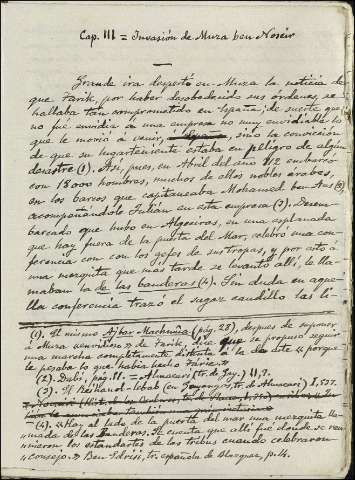 Cap. III = Invasión de Muza ben Noseir
Grande ira despertó en Muza la noticia de
que Tarik, por haber desobedecido sus órdenes, se
hallaba tan comprometido en España; de suerte que
no fué envidia a una empresa no muy envidiable lo
que le movió á venir, sino la convicción
de que su lugarteniente estaba en peligro de algún
desastre (1). Así, pues, en Abril del año 712 embarcó
con 18000 hombres, muchos de ellos nobles árabes,
en los barcos que capitaneaba Mohamed ben Aus (2),
acompañándole Julián en esta empresa (3). Desem-
barcado que hubo en Algeciras, en una esplanada
que hay fuera de la puerta del Mar, celebró una con-
ferencia con los gefes de sus tropas, y por esto á
una mezquita que mas tarde se levantó allí, le lla-
maban la de las banderas (4). Sin duda en aque-
lla conferencia trazó el sagaz caudillo las lí-
(1). El mismo Ajbar Machmuâ (pág. 28), despues de suponer
á Muza «envidioso» de Tarik, dice que se propuso seguir
una marcha completamente distinta á la de este «porque
le pesaba lo que había hecho Tarik.»
(2). Dabí, pág. 11. = Almacari (tr. de Gay.) II, 7.
(3). El Kitab (en Gayangos, tr. de Almacari) I, 537.
(4). «Hay al lado de la puerta del mar una mezquita lla-
«mada de las banderas. Se cuenta que allí fué donde se reu-
«nieron los estandartes de las tribus cuando celebraron
«consejo.» Ben Edrisi, tr. española de Blazquez, p. 14.